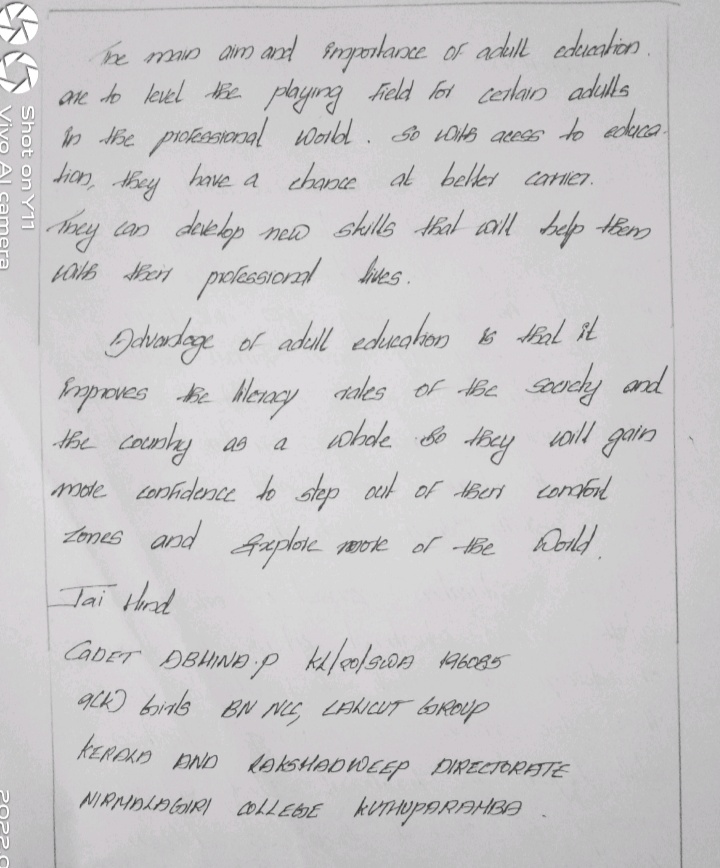 The main aim and importance of adult education.
are to level the playing field for certain adults
in the professional world. So with acess to educa-
tion, they have a chance at better carrier.
They can develop new skills that will help them
with their professional lives.
Advantage of adult education is that it
improves the literacy rates of the society and
the country as a whole so they will gain
more confidence to step out of their comfort
zones and explore more of the World.
Jai Hind
CADET ABHINA.P KL/20/SWA 196085
9(K) Girls BN NCC, CALICUT GROUP
KERALA AND LAKSHADWEEP DIRECTORATE
NIRMALAGIRI COLLEGE KUTHUPARAMBA.
Shot on Y11
Vivo AI camera
2022.0